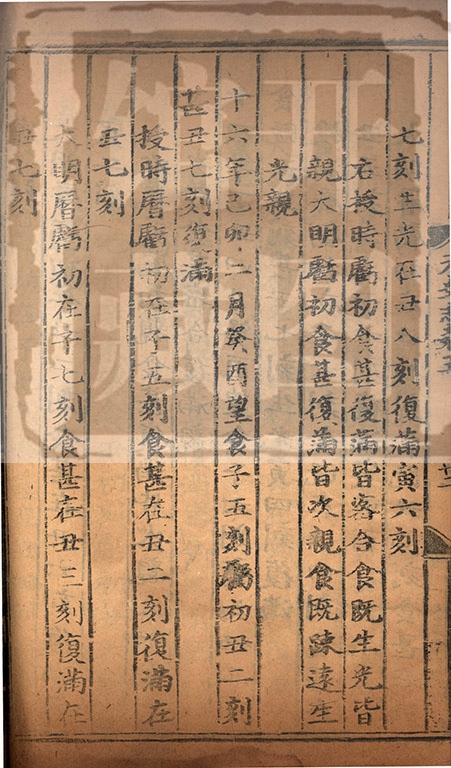 七刻生光在丑八刻復滿寅六刻
右授時虧初食甚復滿皆密合食既生光皆
親大明虧初食甚復滿皆次親食既疎遠生
光親
十六年己卯二月癸酉望食子五刻虧初丑二刻
甚丑七刻復滿
授時曆虧初在子五刻食甚在丑二刻復滿在
丑七刻
大明曆虧初在子七刻食甚在丑三刻復滿在
丑七刻